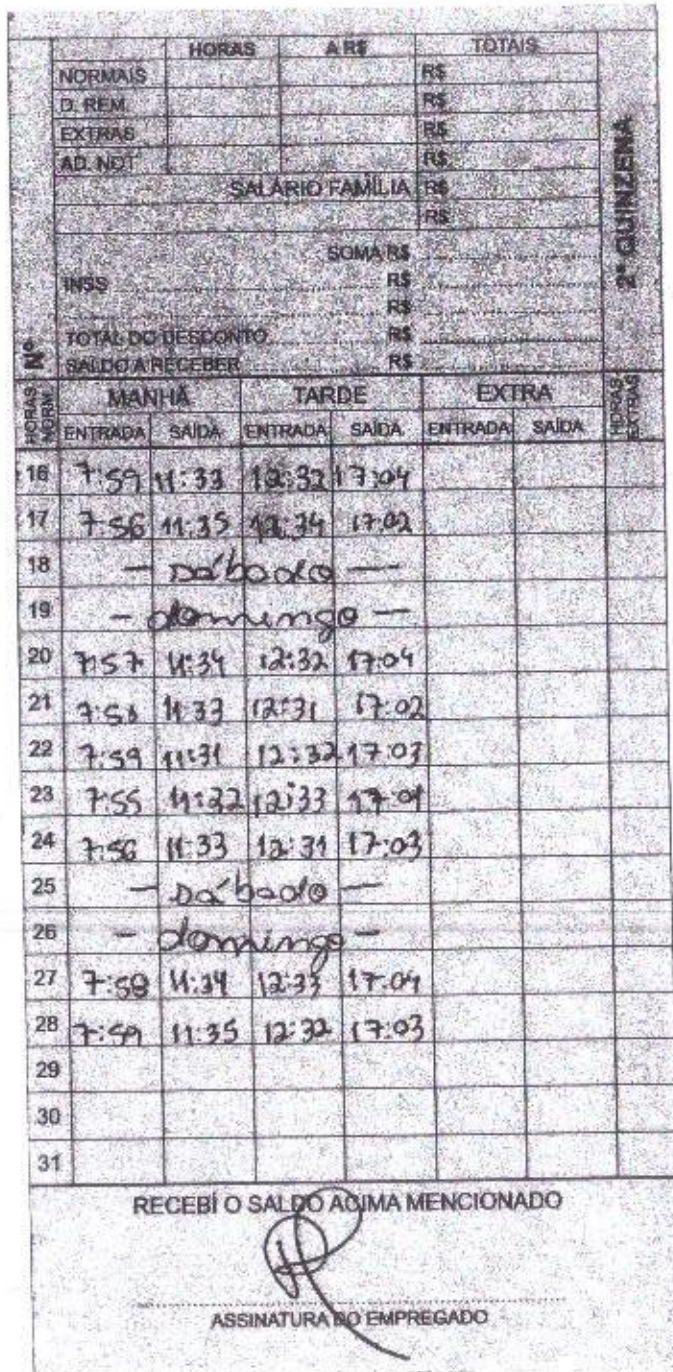 HORAS A R$ TOTAIS
NORMAIS R$
D. REM. R$
EXTRAS R$
AD. NOT R$
SALÁRIO FAMÍLIA R$
R$
SOMA R$
INSS R$
R$
TOTAL DO DESCONTO R$
SALDO A RECEBER R$
Nº
2ª QUINZENA
HORAS NORM. MANHÃ TARDE EXTRA HORAS EXTRAS
ENTRADA SAÍDA ENTRADA SAÍDA ENTRADA SAÍDA
16 7:59 11:33 12:32 17:04
17 7:56 11:35 12:34 17:02
18 — Sábado —
19 — domingo —
20 7:57 11:34 12:32 17:04
21 7:58 11:33 12:31 17:02
22 7:59 11:31 12:32 17:03
23 7:55 11:32 12:33 17:01
24 7:56 11:33 12:31 17:03
25 — Sábado —
26 — domingo —
27 7:58 11:34 12:33 17:04
28 7:59 11:35 12:32 17:03
29
30
31
RECEBÍ O SALDO ACIMA MENCIONADO
ASSINATURA DO EMPREGADO